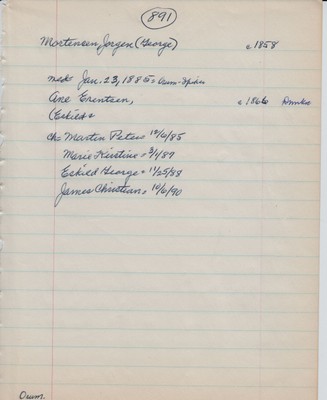 891
Mortensen, Jorgen (George) c 1858
med. Jan. 23, 1885
Ane Erentsen, c 1866
(Eskild
ch: Martin Peter = 10/6/85
Marie Kirstine = 3/1/87
Eskild George = 11/25/88
James Christian = 10/6/90
Orum.